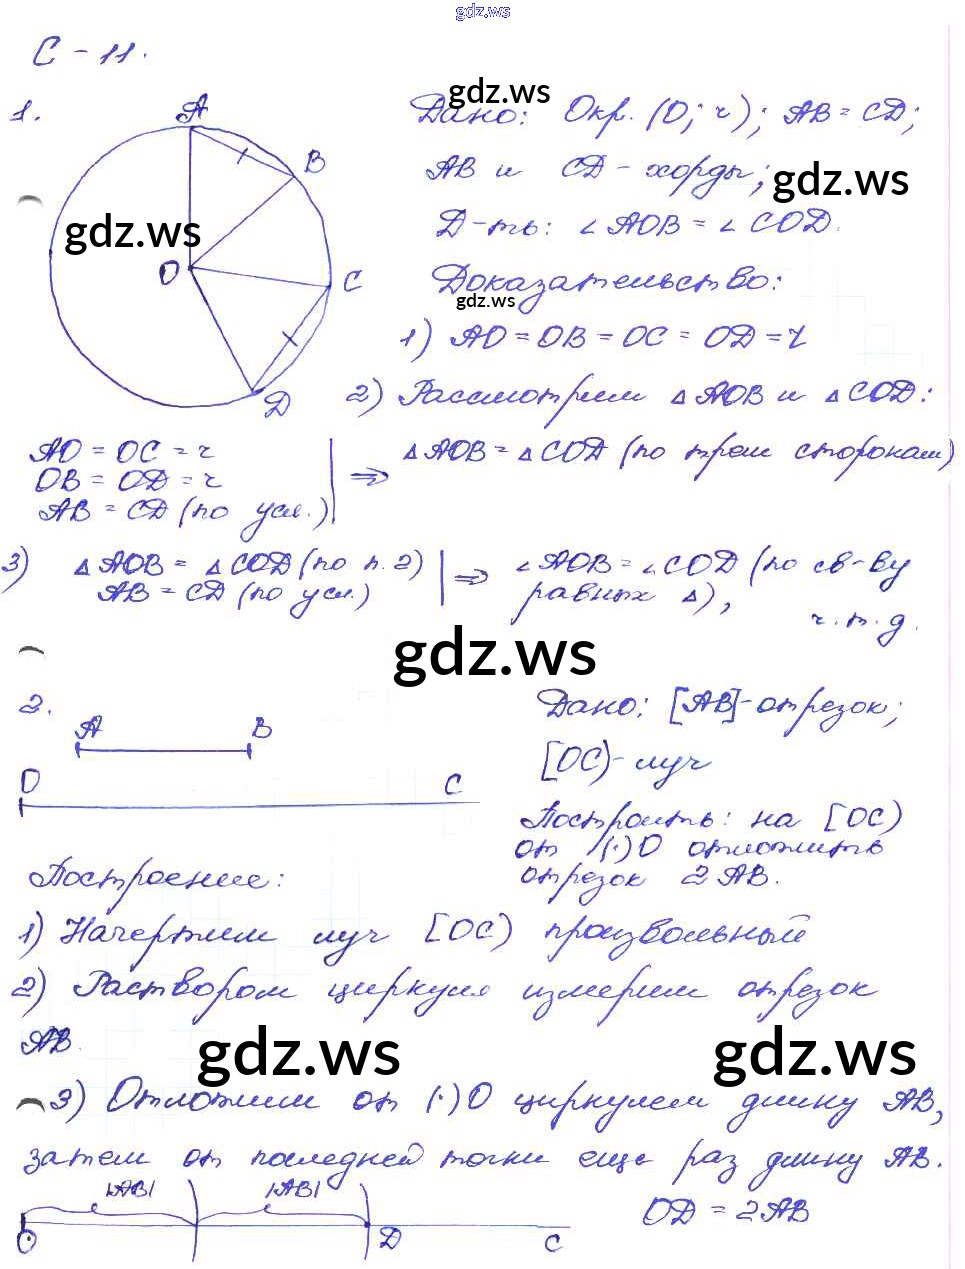 gdz.ws
С - 11.
1.
A
B
C
D
O
gdz.ws
Дано: Окр. (O; r); AB = CD;
gdz.ws
AB и CD - хорды;
gdz.ws
Д-ть: ∠AOB = ∠COD.
Доказательство:
gdz.ws
1) AO = OB = OC = OD = r
2) Рассмотрим △AOB и △COD:
AO = OC = r
OB = OD = r
AB = CD (по усл.)
⇒ △AOB = △COD (по трем сторонам)
3) △AOB = △COD (по п. 2)
AB = CD (по усл.)
⇒ ∠AOB = ∠COD (по св-ву
равных △),
ч.т.д.
gdz.ws
2.
A B
O C
Дано: [AB] - отрезок;
[OC) - луч
Построить: на [OC)
от (·)O отложить
отрезок 2AB.
Построение:
1) Начертим луч [OC) произвольный
2) Раствором циркуля измерим отрезок
AB.
gdz.ws
gdz.ws
3) Отложим от (·)O циркулем длину AB,
затем от последней точки еще раз длину AB.
|AB| |AB|
O D C
OD = 2AB